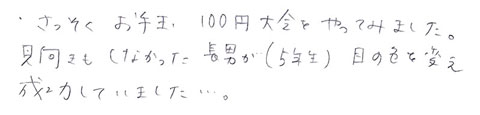 ・さっそく お手玉、100円大会を やってみました。
見向きも しなかった 長男が(5年生) 目の色を変え
成功していました…。